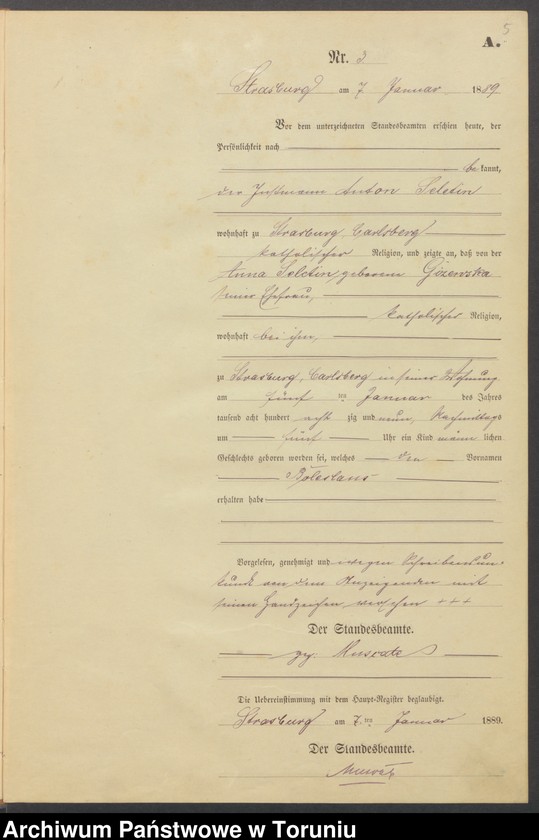 5
A.
Nr. 3
Strasburg am 7 Januar 1889
Vor dem unterzeichneten Standesbeamten erschien heute, der
Persönlichkeit nach
bekannt,
der Instmann Anton
wohnhaft zu Strasburg, Carlsberg
katholischer Religion, und zeigte an, daß von der
Anna geborenen
seiner Ehefrau,
katholischer Religion,
wohnhaft bei ihm,
zu Strasburg, Carlsberg in seiner Wohnung
am fünf ten Januar des Jahres
tausend acht hundert acht zig und neun, Nachmittags
um fünf Uhr ein Kind männ lichen
Geschlechts geboren worden sei, welches den Vornamen
Boleslaus
erhalten habe
Vorgelesen, genehmigt und wegen Schreibensun-
kunde von dem Anzeigenden mit
seinen Handzeichen versehen +++
Der Standesbeamte.
gez.
Die Uebereinstimmung mit dem Haupt-Register beglaubigt.
Strasburg am 7. ten Januar 1889.
Der Standesbeamte.
Archiwum Państwowe w Toruniu